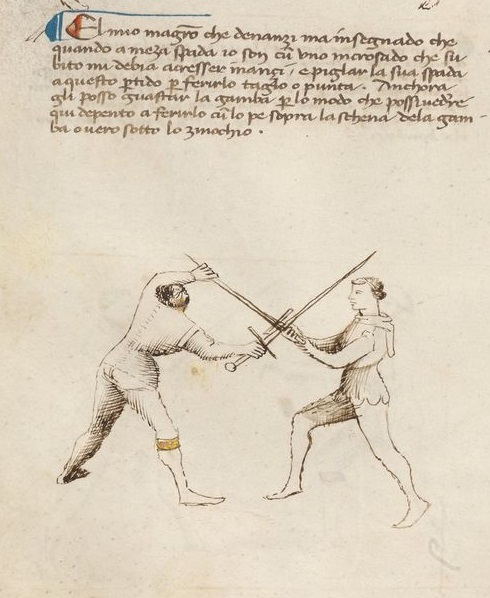 El mio magro che denanzi ma insegnado che
quando a meza spada io son cū vno incrosado che su
bito mi debia acresser inançi / e piglar la sua spada
a questo ꝑtido ꝑ ferirlo taglo o punta. Anchora
gli posso guastar la gamba ꝑ lo modo che possi vedere
qui depento a ferirlo cū lo pe sopra la schena dela gam-
ba o uero sotto lo zinochio.